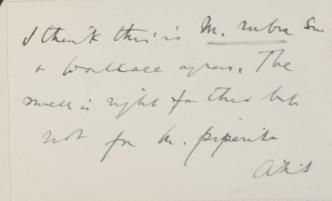 I think this is M. rubra Sm
& Wallace agrees. The
smell is right for this but
not for M. piperita